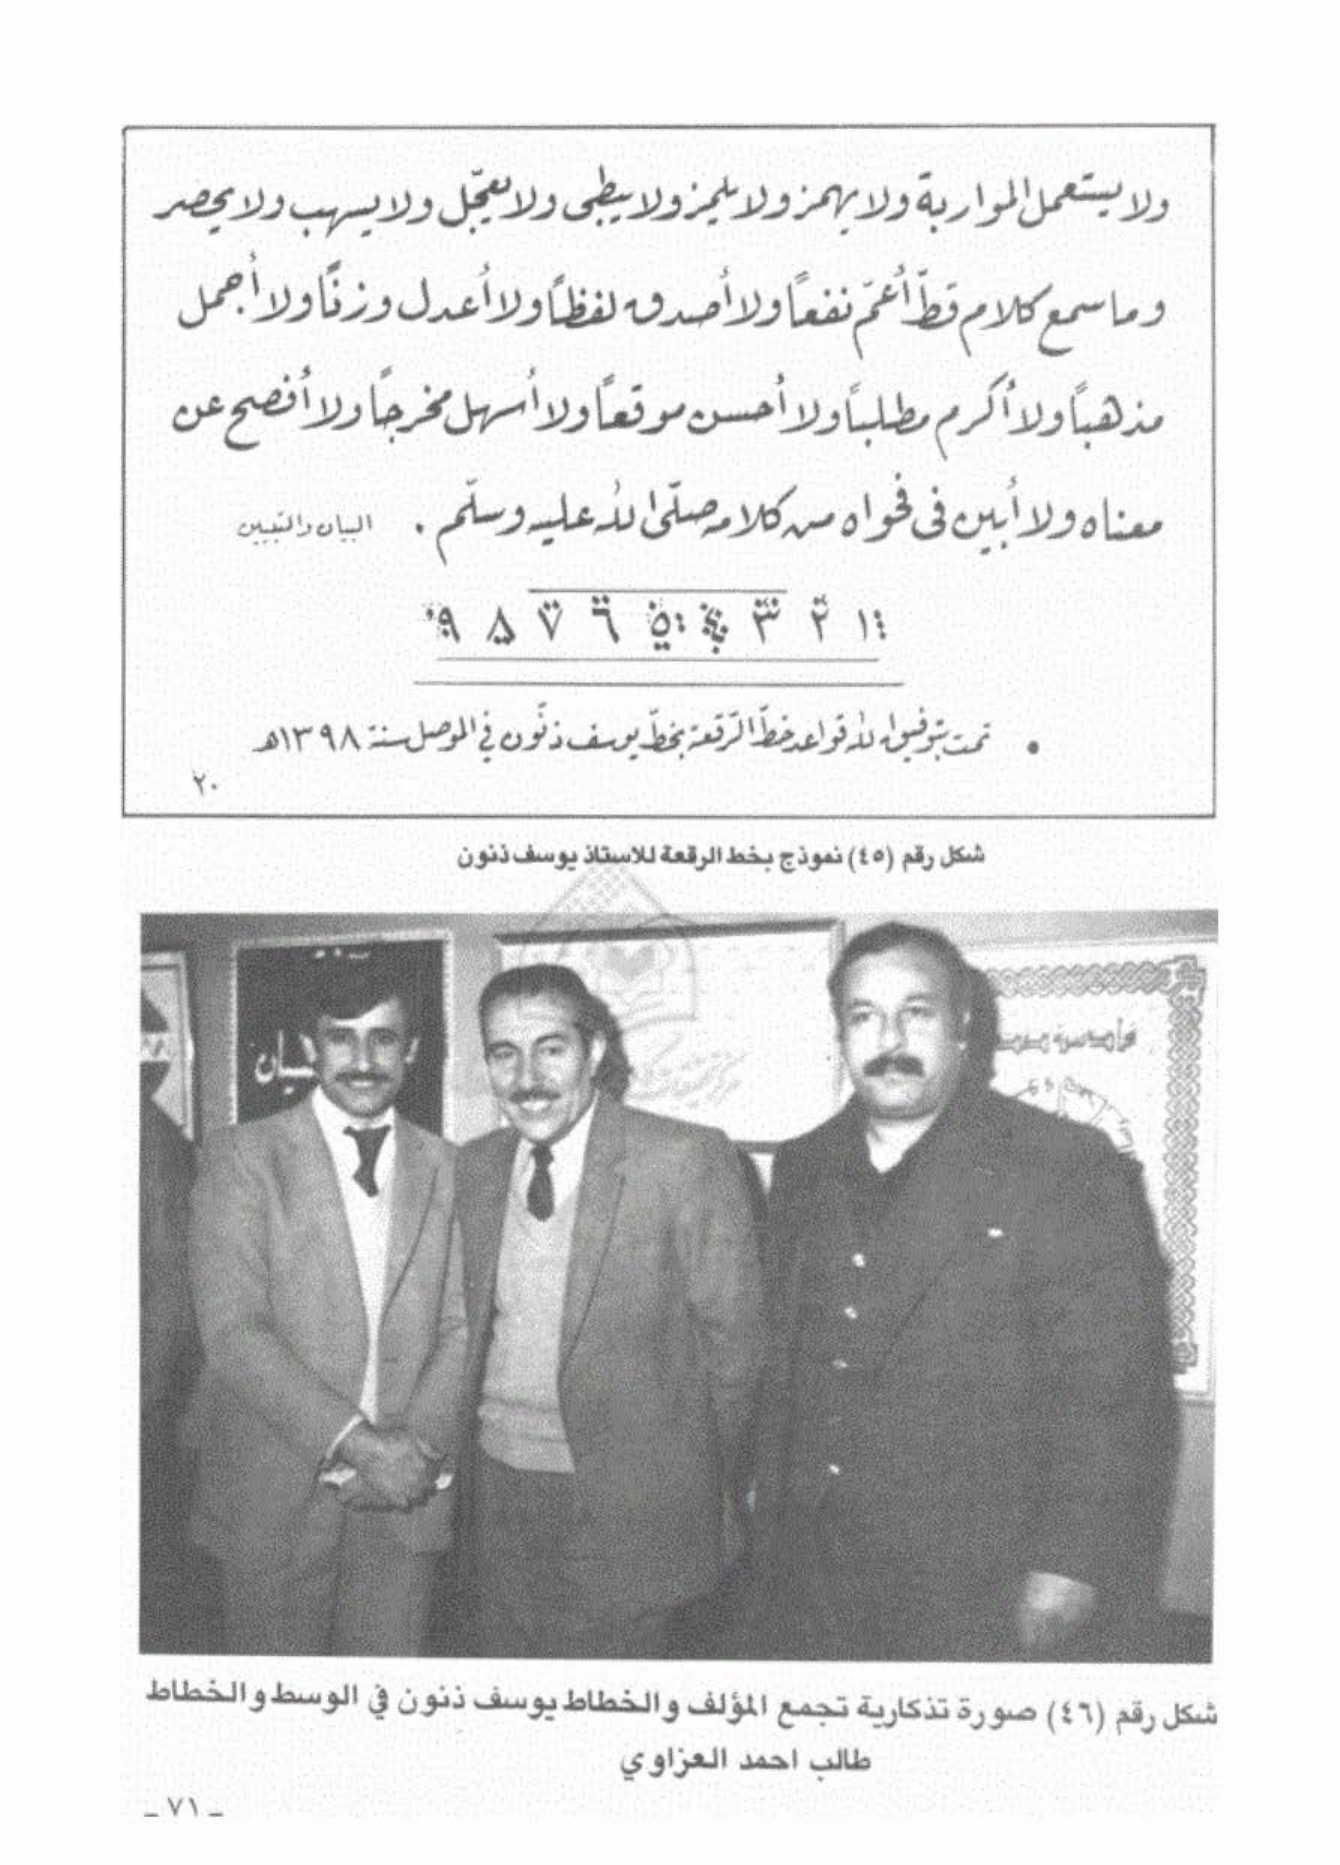 ولا يستعمل المواربة ولا يهمز ولا يلمز ولا يبطئ ولا يعجّل ولا يسهب ولا يحصر
وما سمع كلام قطّ أعمّ نفعاً ولا أصدق لفظاً ولا أعدل وزناً ولا أجمل
مذهباً ولا أكرم مطلباً ولا أحسن موقعاً ولا أسهل مخرجاً ولا أفصح عن
معناه ولا أبين في فحواه من كلامه صلّى الله عليه وسلّم . البيان والتبيين
١ ٢ ٣ ٤ ٥ ٦ ٧ ٨ ٩
• تمت بتوفيق الله قواعد خطّ الرّقعة بخطّ يوسف ذنّون في الموصل سنة ١٣٩٨هـ
٢٠
شكل رقم (٤٥) نموذج بخط الرقعة للاستاذ يوسف ذنون
شكل رقم (٤٦) صورة تذكارية تجمع المؤلف والخطاط يوسف ذنون في الوسط والخطاط
طالب احمد العزاوي
- ٧١ -